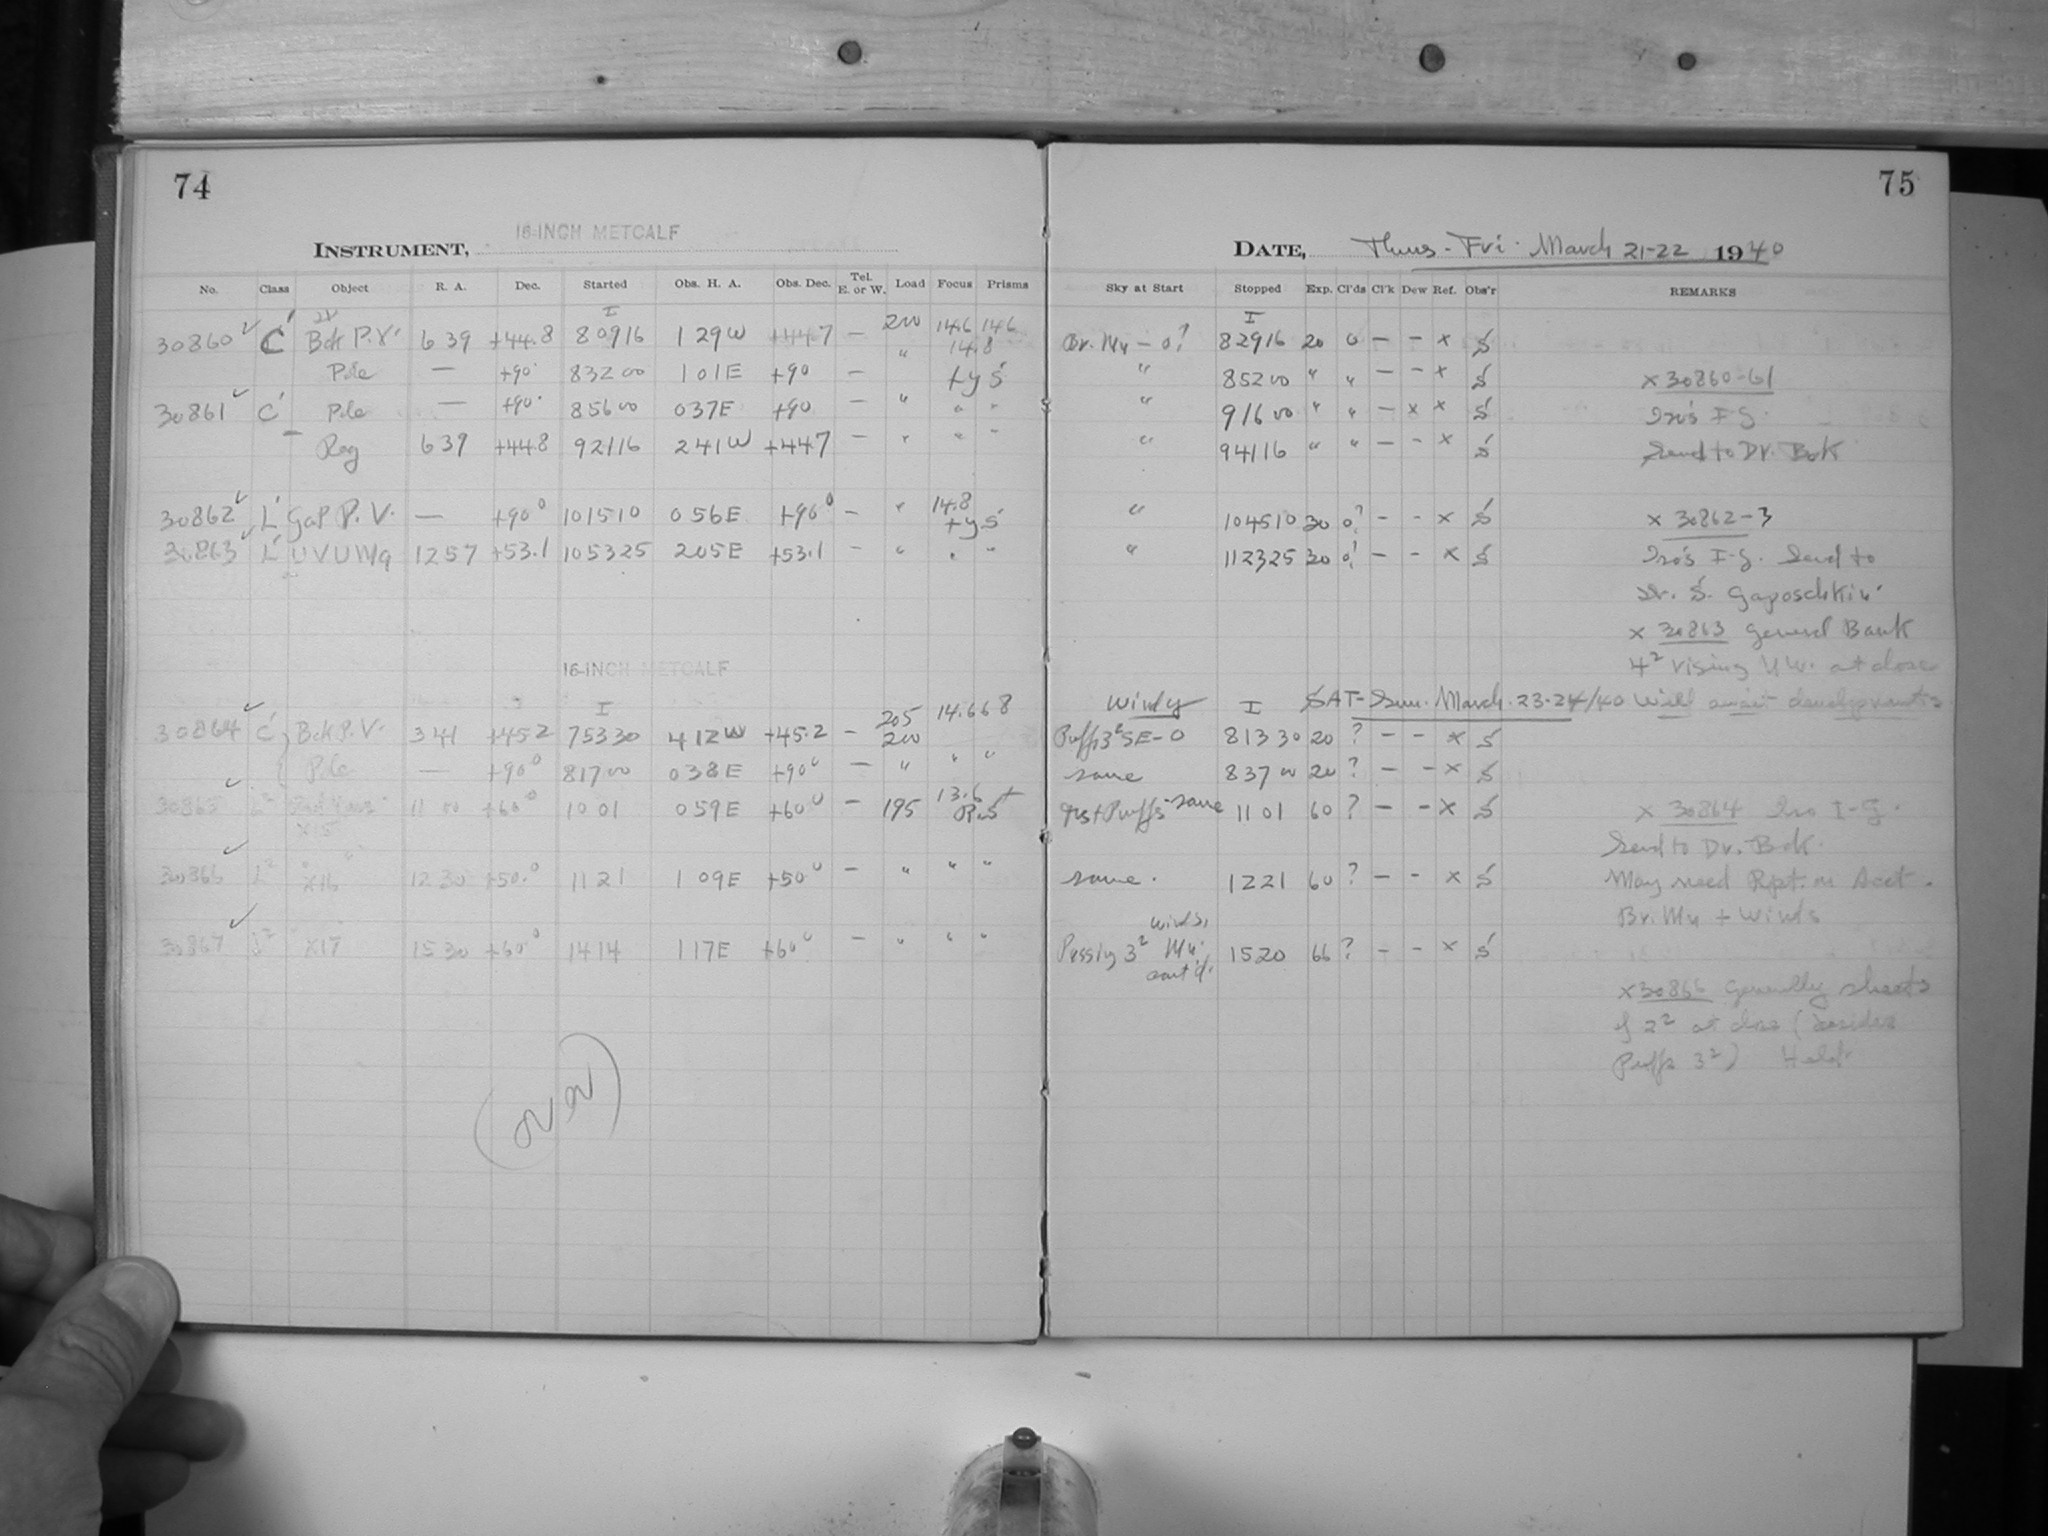 74
INSTRUMENT, 16-INCH METCALF
No. Class Object R. A. Dec. Started Obs. H. A. Obs. Dec. Tel. E. or W. Load Focus Prisms
I
30860 C' Bok P.V. 6 39 +44.8 80916 1 29W +447 — 200 14.6 14.6
Pole — +90 83200 101E +90 — " 14.8
+y S
30861 C' Pole — +90 85600 037E +90 — " " "
Reg 6 39 +44.8 92116 241W +447 — " " "
30862 L' Gap P.V. — +90° 101510 056E +90° — " 14.8 +y S
30863 L' UV UMa 1257 +53.1 105325 205E +53.1 — " " "
16-INCH METCALF
I
30864 C' Bok P.V. 341 +45.2 75330 412W +45.2 — 205 200 14.6 6 8
Pole — +90° 81700 038E +90° — " " "
30865 L² 11 00 +60° 1001 059E +60° — 195 13.6
X15
30866 L² X16 " 1230 +50.° 1121 1 09E +50° — " " "
30867 X17 1530 +60° 1414 117E +60° — " " "
(over)
75
DATE, Thurs-Fri. March 21-22 1940
Sky at Start Stopped Exp. Cl'ds Cl'k Dew Ref. Obs'r REMARKS
I
Br. Mn — 0? 82916 20 0 — — x S
" 85200 " " — — x S x 30860-61
" 91600 " " — x x S Iro's I-G.
" 94116 " " — — x S Send to Dr. Bok
" 104510 30 0? — — x S x 30862-3
" 112325 30 0? — — x S Iro's I-G. Send to
Dr. S. Gaposchkin.
x 30863 General Bank
4² rising NW. at close
Windy I SAT-Sun. March. 23-24/40 Will await developments
Puffs 3² SE-0 81330 20 ? — — x S
same 83700 20 ? — — x S
Puffs same 1101 60 ? — — x S x 30864 Iro I-G.
Send to Dr. Bok.
same. 1221 60 ? — — x S May need Rpt. on Acct.
Br. Mn + Winds
Passing 3² winds, Mn. cont'd. 1520 66 ? — — x S
x 30866 Generally sheets
of 2² at close (besides
Puffs 3²) Held